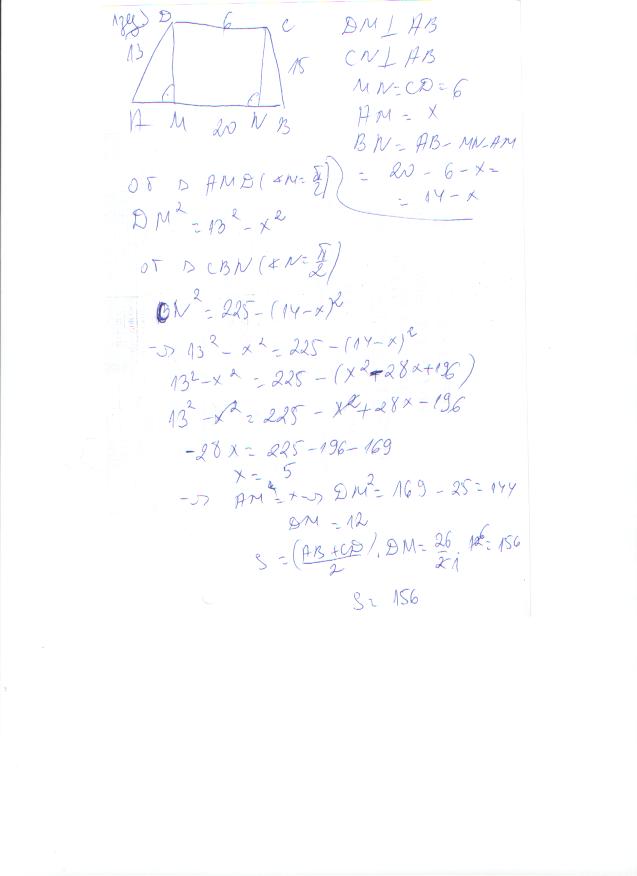 1зад) D 6 C
13 15
A M 20 N B
DM ⊥ AB
CN ⊥ AB
MN = CD = 6
AM = x
BN = AB - MN - AM
= 20 - 6 - x =
= 14 - x
от ⊳ AMD (∢M = π/2)
DM² = 13² - x²
от ⊳ CBN (∢N = π/2)
CN² = 225 - (14-x)²
⇒ 13² - x² = 225 - (14-x)²
13² - x² = 225 - (x² - 28x + 196)
13² - x² = 225 - x² + 28x - 196
-28x = 225 - 196 - 169
x = 5
⇒ AM = x ⇒ DM² = 169 - 25 = 144
DM = 12
S = (AB + CD)/2 . DM = 26/2 1 . 12 6 = 156
S = 156